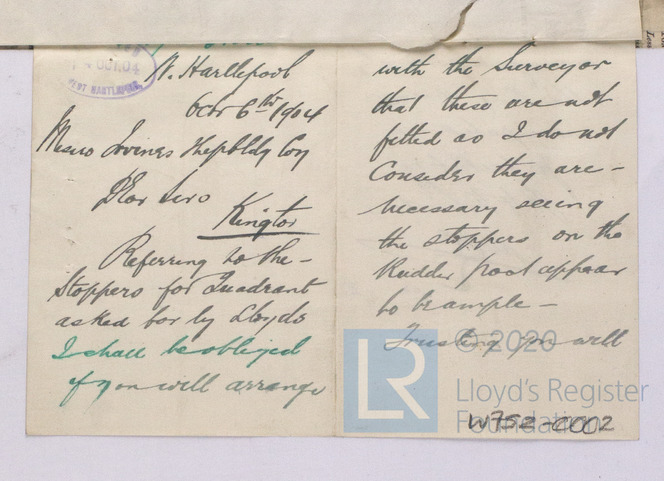 OCT.04
WEST HARTLEPOOL
W. Hartlepool
Octr 6th 1904
Messrs Irvines Shpbldg Coy
Dear Sirs
Kingtor
Referring to the -
Stoppers for Quadrant
asked for by Lloyds
I shall be obliged
if you will arrange
with the Surveyor
that these are not
fitted as I do not
Consider they are -
necessary seeing
the stoppers on the
Rudder post appear
to be ample -
Trusting you will
© 2020
LR
Lloyd's Register
Foundation
W752-0002